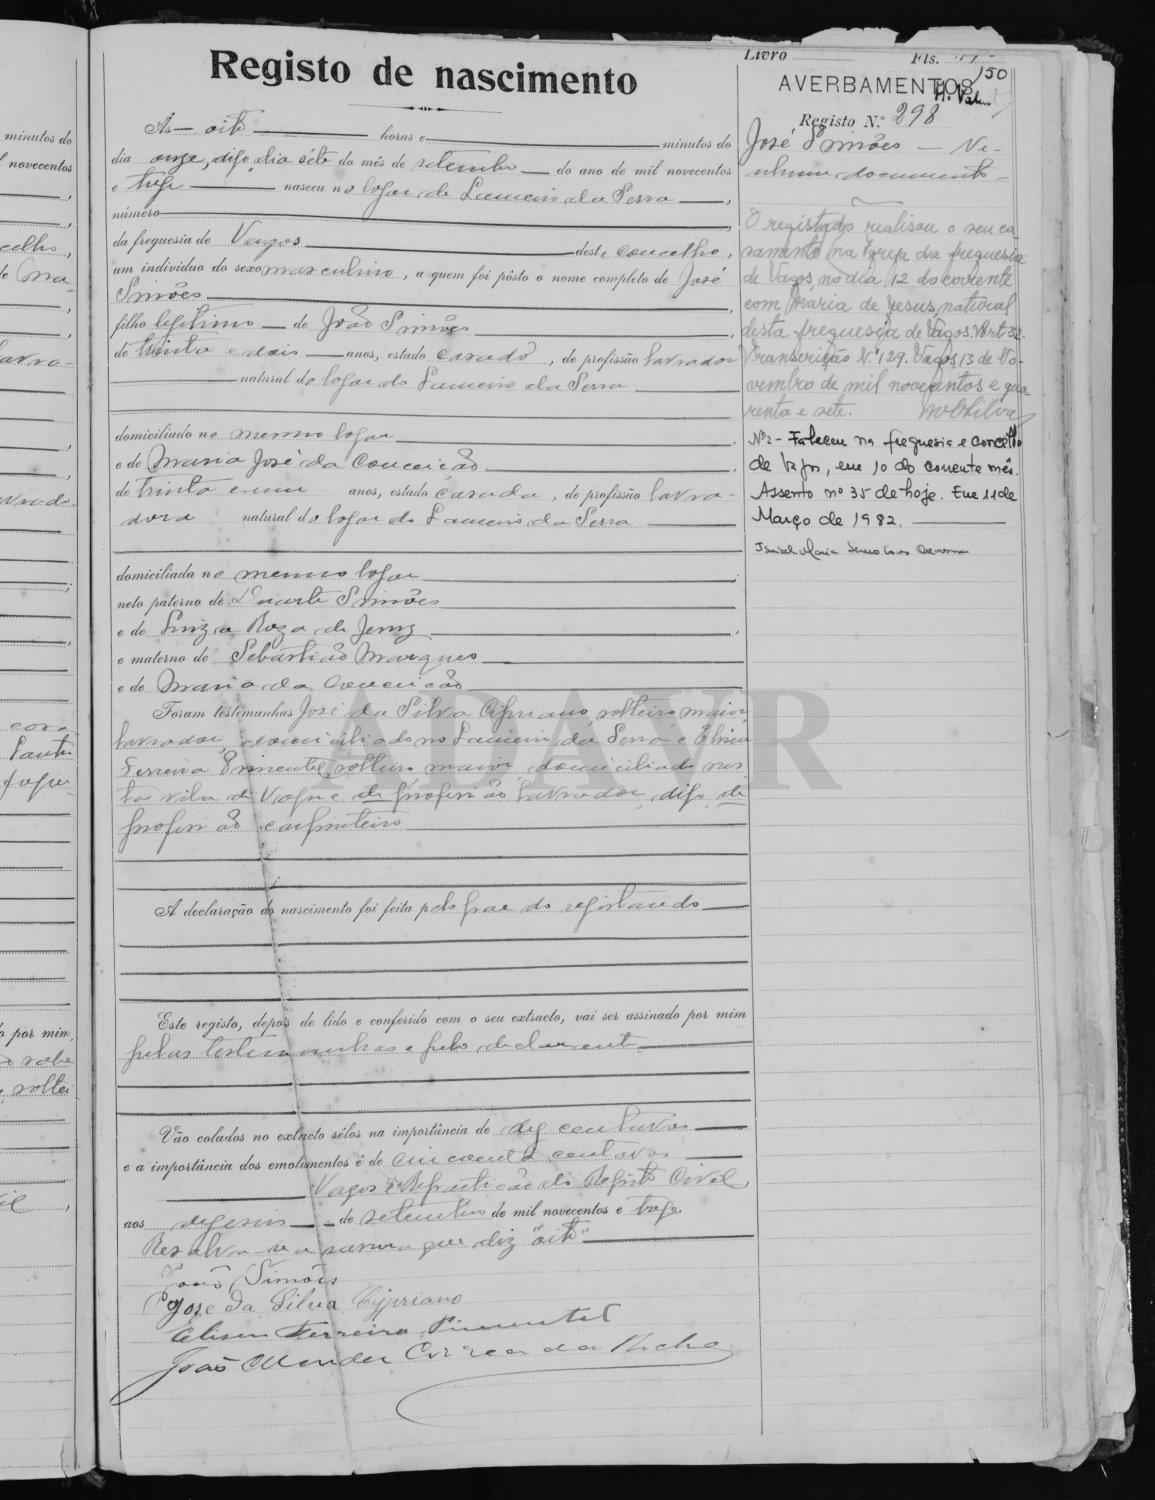 Registo de nascimento
Ás oito horas e minutos do
dia onze, digo, dia séte do mês de setembro do ano de mil novecentos
e treze nasceu no logar de Lameiro da Serra,
número
da freguesia de Vagos deste concelho,
um individuo do sexo masculino, a quem foi pôsto o nome completo de José
Simões
filho legitimo de João Simões
de trinta e dois anos, estado casado, de profissão lavrador
natural do logar do Lameiro da Serra
domiciliado no mesmo logar
e de Maria José da Conceição
de trinta e um anos, estado casada, de profissão lavra-
dora natural do logar do Lameiro da Serra
domiciliada no mesmo logar
neto paterno de Duarte Simões
e de Luiza Roza de Jesus
e materno de Sebastião Marques
e de Maria da Conceição
Foram testimunhas José da Silva Cipriano, solteiro, maior,
lavrador, domiciliado no Lameiro da Serra e Eliseu
Ferreira Pimentel, solteiro, maior, domiciliado nes-
ta vila de Vagos e de profissão lavrador, digo, de
profissão carpinteiro
A declaração do nascimento foi feita pelo pae do registando
Este registo, depois de lido e conferido com o seu extracto, vai ser assinado por mim
pelas testemunhas e pelo declarante
Vão colados no extracto sêlos na importância de dez centavos
e a importância dos emolumentos é de cincoenta centavos
Vagos e Repartição do Registo Civil,
aos dezeseis de setembro de mil novecentos e treze.
Resalva-se a rasura que diz "oito"
João Simões
José da Silva Cypriano
Eliseu Ferreira Pimentel
João Mendes Correia da Rocha
Livro Fls.
150
AVERBAMENTOS
Registo N.º 298
José Simões — Ne-
nhum documento
O registado realisou o seu ca-
samento na Igreja da freguesia
de Vagos, no dia 12 do corrente
com Maria de Jesus, natural
desta freguesia de Vagos.
Transcrição N.º 129. Vagos, 13 de No-
vembro de mil novecentos e qua-
renta e sete.
Nº 2 - Faleceu na freguesia e concelho
de Vagos, em 10 do corrente mês.
Assento nº 35 de hoje. Em 11 de
Março de 1982.
ADAVR
minutos do
novecentos
por mim,